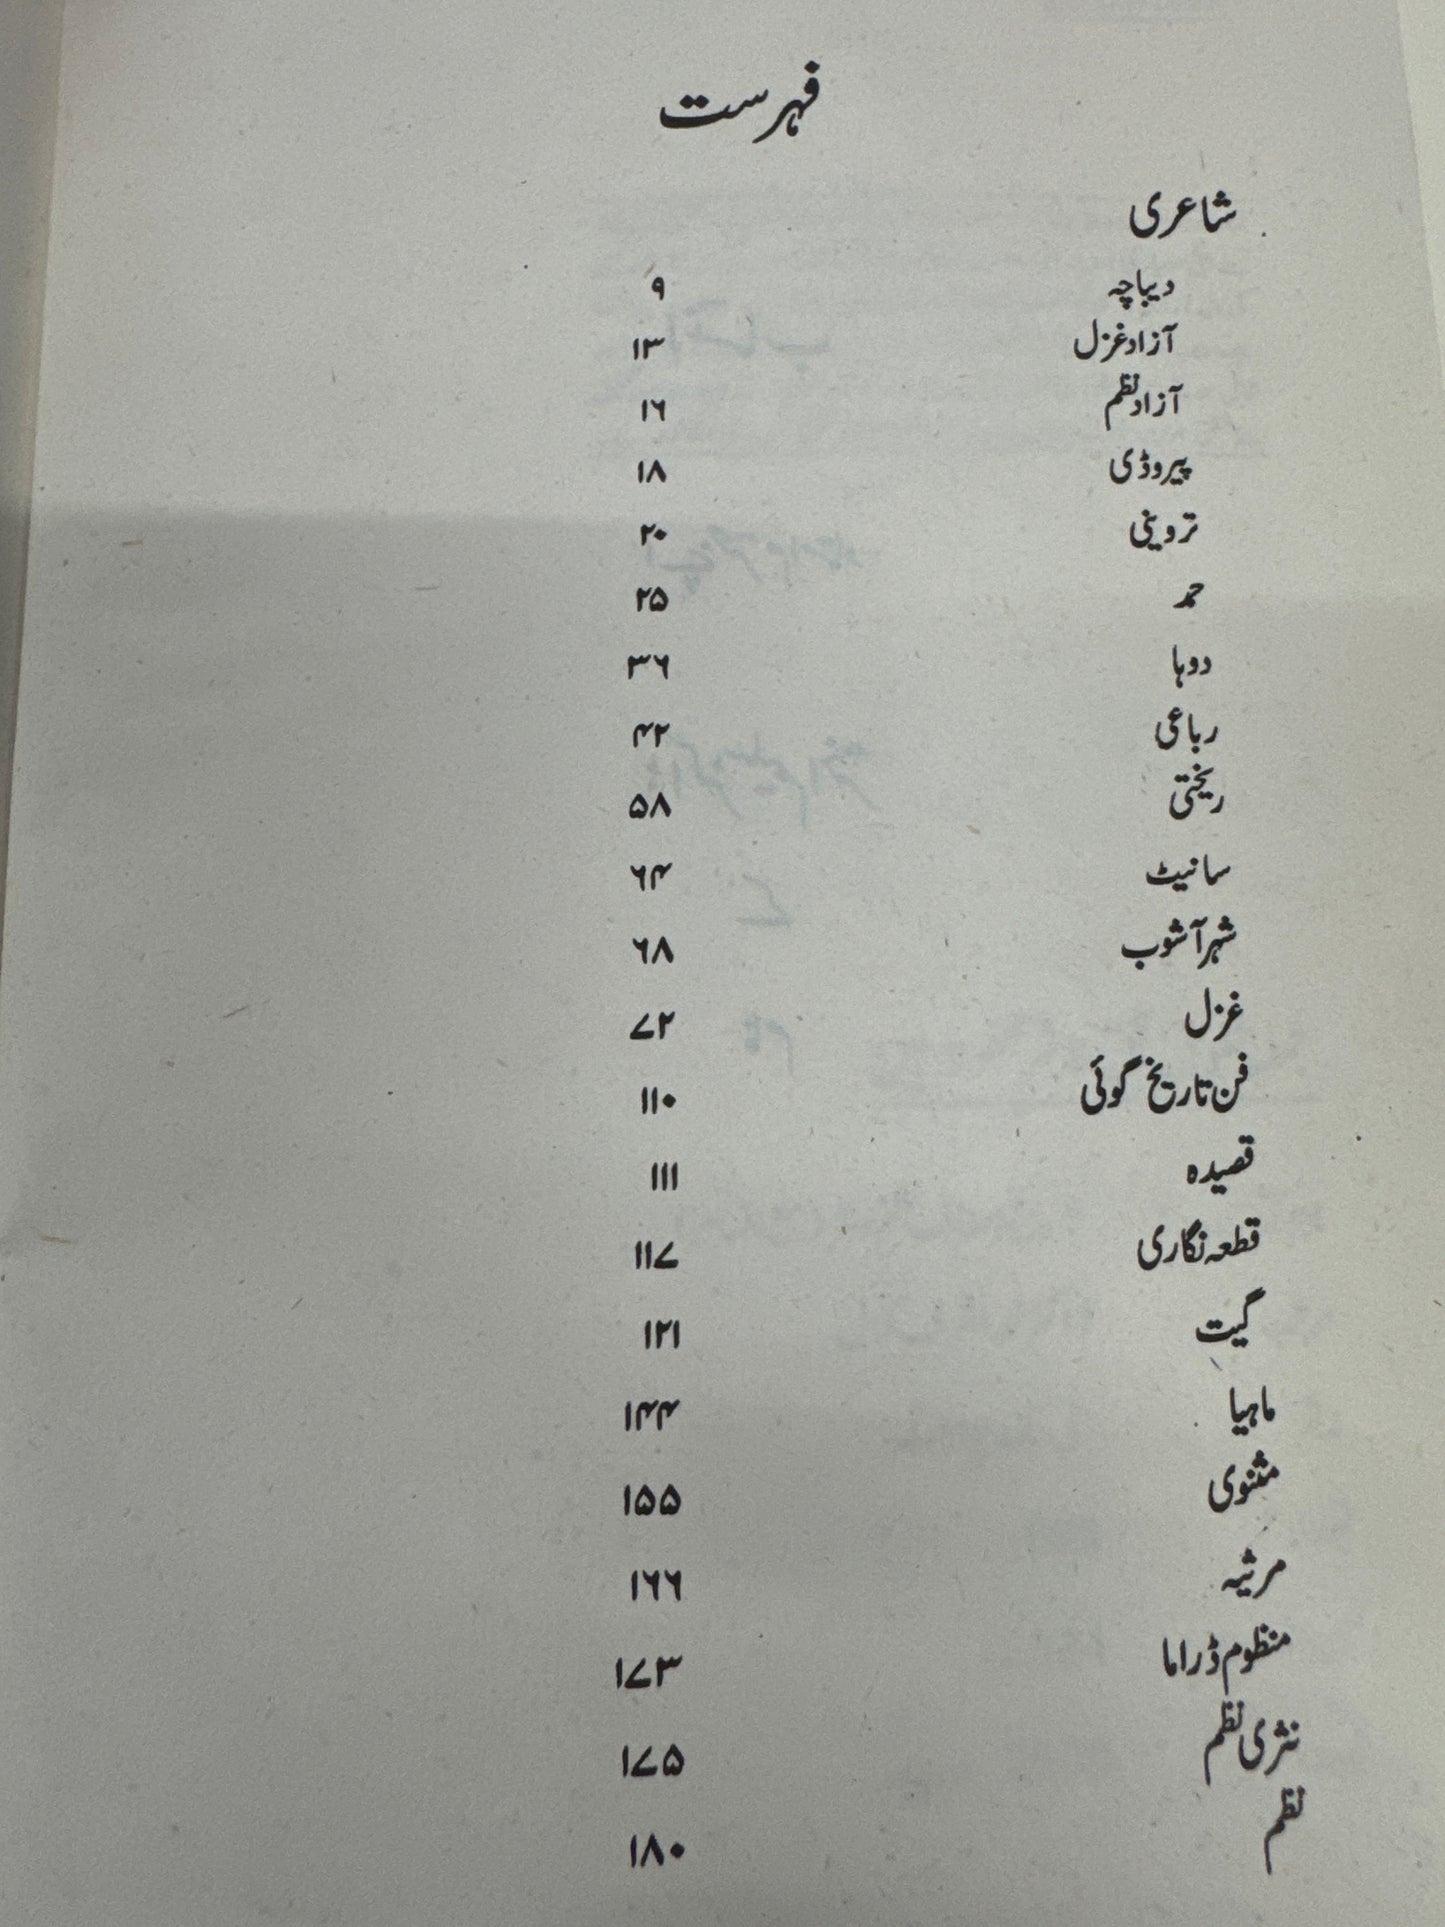 فہرست
شاعری
دیباچہ ۹
آزاد غزل ۱۳
آزاد نظم ۱۶
پیروڈی ۱۸
تروینی ۲۰
حمد ۲۵
دوہا ۳۶
رباعی ۴۲
ریختی ۵۸
سانیٹ ۶۴
شہر آشوب ۶۸
غزل ۷۲
فن تاریخ گوئی ۱۱۰
قصیدہ ۱۱۱
قطعہ نگاری ۱۱۷
گیت ۱۲۱
ماہیا ۱۴۴
مثنوی ۱۵۵
مرثیہ ۱۶۶
منظوم ڈراما ۱۷۳
نثری نظم ۱۷۵
نظم ۱۸۰